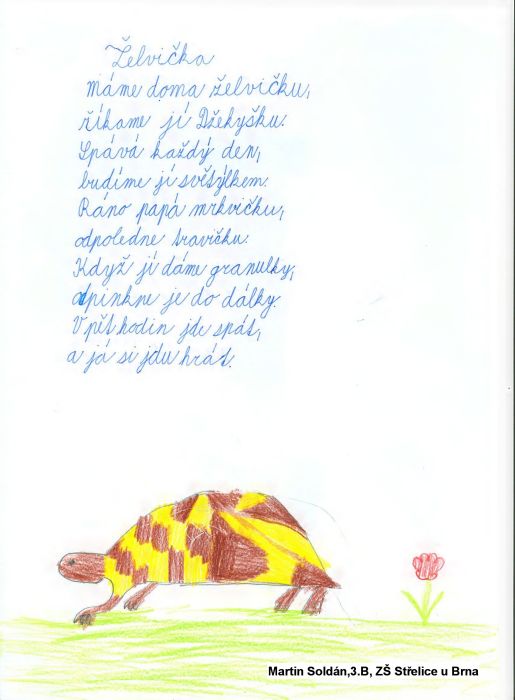 Želvička
Máme doma želvičku,
říkáme jí Džekyšku.
Spává každý den,
budíme jí světýlkem.
Ráno papá mrkvičku,
odpoledne travičku.
Když jí dáme granulky,
odpinkne je do dálky.
V pět hodin jde spát,
a já si jdu hrát.
Martin Soldán,3.B, ZŠ Střelice u Brna